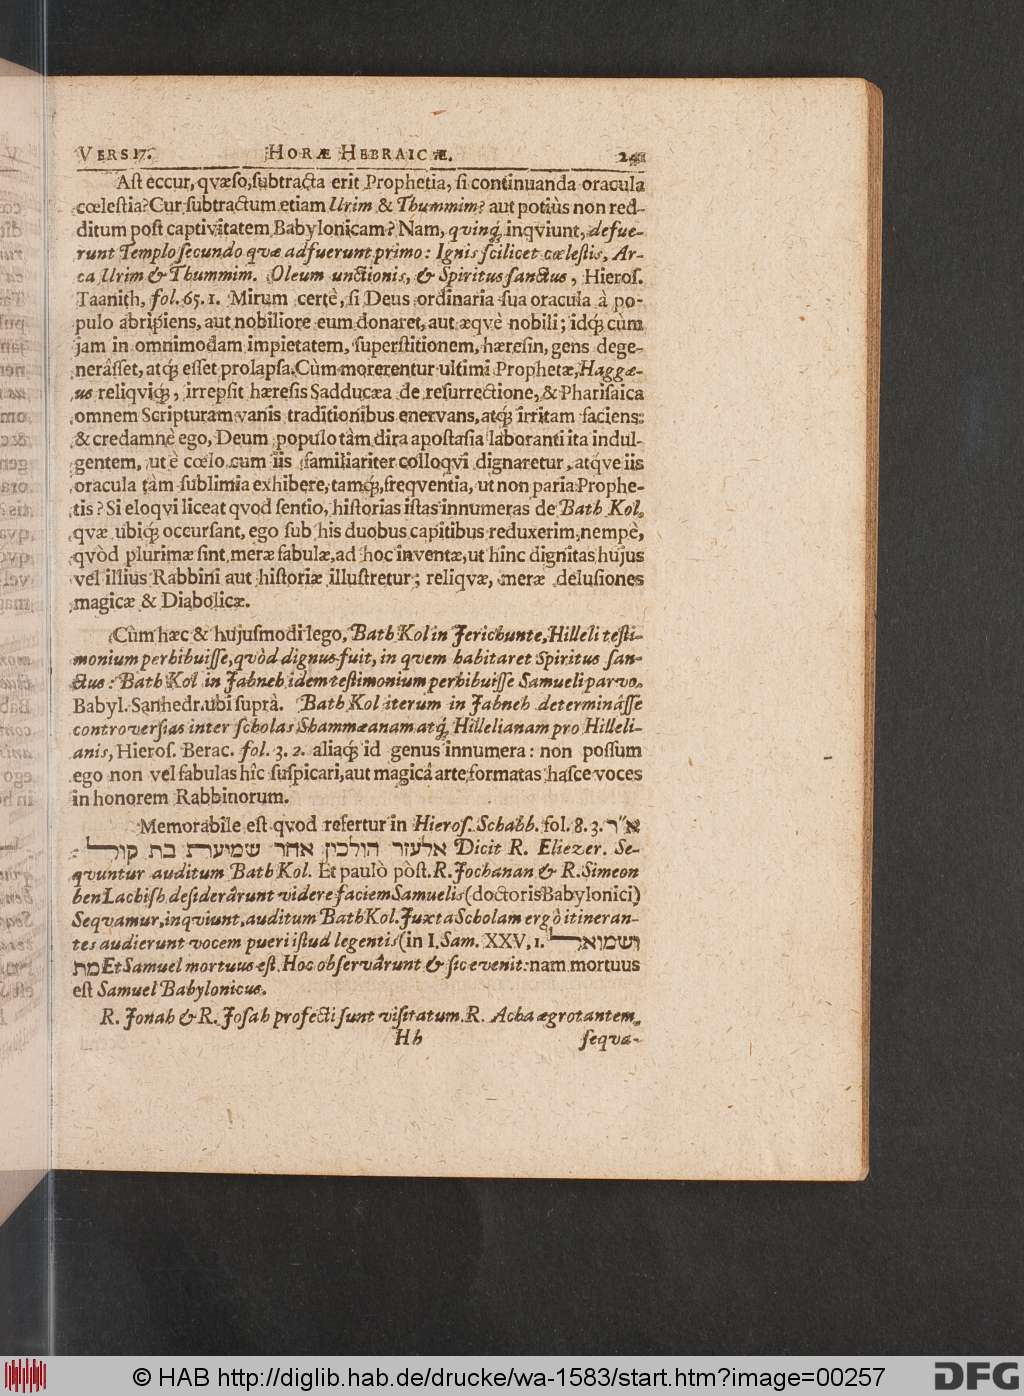 VERS 17. HORÆ HEBRAICÆ. 241
Aſt eccur, qvæſo, ſubtracta erit Prophetia, ſi continuanda oracula
cœleſtia? Cur ſubtractum etiam Urim & Thummim? aut potiùs non red-
ditum poſt captivitatem Babylonicam? Nam, qvinq́; inqviunt, defue-
runt Templo ſecundo qvæ adfuerunt primo: Ignis ſcilicet cœleſtis, Ar-
ca Urim & Thummim. Oleum unctionis, & Spiritus ſanctus, Hieroſ.
Taanith, fol. 65. 1. Mirum certè, ſi Deus ordinaria ſua oracula à po-
pulo abripiens, aut nobiliore eum donaret, aut æqvè nobili; idq́; cùm
jam in omnimodam impietatem, ſuperſtitionem, hæreſin, gens dege-
nerâſſet, atq́; eſſet prolapſa. Cùm morerentur ultimi Prophetæ, Haggæ-
us reliqviq́;, irrepſit hæreſis Sadducæa de reſurrectione, & Phariſaica
omnem Scripturam vanis traditionibus enervans, atq́; irritam faciens:
& credamnè ego, Deum populo tàm dira apoſtaſia laboranti ita indul-
gentem, ut è cœlo cum iis familiariter colloqvi dignaretur, atqve iis
oracula tàm ſublimia exhibere, tamq́; freqventia, ut non paria Prophe-
tis? Si eloqvi liceat qvod ſentio, hiſtorias iſtas innumeras de Bath Kol,
qvæ ubiq́; occurſant, ego ſub his duobus capitibus reduxerim, nempè,
qvòd plurimæ ſint meræ fabulæ, ad hoc inventæ, ut hinc dignitas hujus
vel illius Rabbini aut hiſtoriæ illuſtretur; reliqvæ, meræ deluſiones
magicæ & Diabolicæ.
Cùm hæc & hujuſmodi lego, Bath Kol in Jerichunte, Hilleli teſti-
monium perhibuiſſe, qvòd dignus fuit, in qvem habitaret Spiritus ſan-
ctus: Bath Kol in Jabneh idem teſtimonium perhibuiſſe Samueli parvo.
Babyl. Sanhedr. ubi ſuprà. Bath Kol iterum in Jabneh determinâſſe
controverſias inter ſcholas Shammæanam atq́; Hillelianam pro Hilleli-
anis, Hieroſ. Berac. fol. 3. 2. aliaq́; id genus innumera: non poſſum
ego non vel fabulas hîc ſuſpicari, aut magicâ arte formatas haſce voces
in honorem Rabbinorum.
Memorabile eſt qvod refertur in Hieroſ. Schabb. fol. 8. 3. א״ר
אלעזר הולכין אחר שמיערת בת קורל: Dicit R. Eliezer. Se-
qvuntur auditum Bath Kol. Et paulò pòſt. R. Jochanan & R. Simeon
ben Lachiſh deſiderârunt videre faciem Samuelis (doctoris Babylonici)
Seqvamur, inqviunt, auditum Bath Kol. Juxta Scholam ergò itineran-
tes audierunt vocem pueri iſtud legentis (in I. Sam. XXV, 1. ושמואל
מת Et Samuel mortuus eſt. Hoc obſervârunt & ſic evenit: nam mortuus
eſt Samuel Babylonicus.
R. Jonah & R. Joſah profecti ſunt viſitatum R. Acha ægrotantem.
Hh ſeqva-
© HAB http://diglib.hab.de/drucke/wa-1583/start.htm?image=00257
DFG